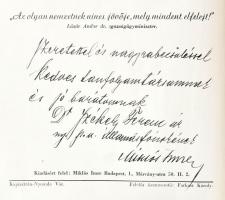 „Az olyan nemzetnek nincs jövője, mely mindent elfelejt!"
Lázár Andor dr. igazságügyminiszter.
Szeretettel és nagyrabecsüléssel
kedves tanfolyamtársamnak
és jó barátomnak
Dr Székely Ferenc úr
államfőnöknek
Miklós Imre
Kiadásért felel: Miklós Imre Budapest, I., Márvány-utca 50. II. 2.
Kapisztrán-Nyomda Vác.
Felelős üzemvezető: Farkas Károly.